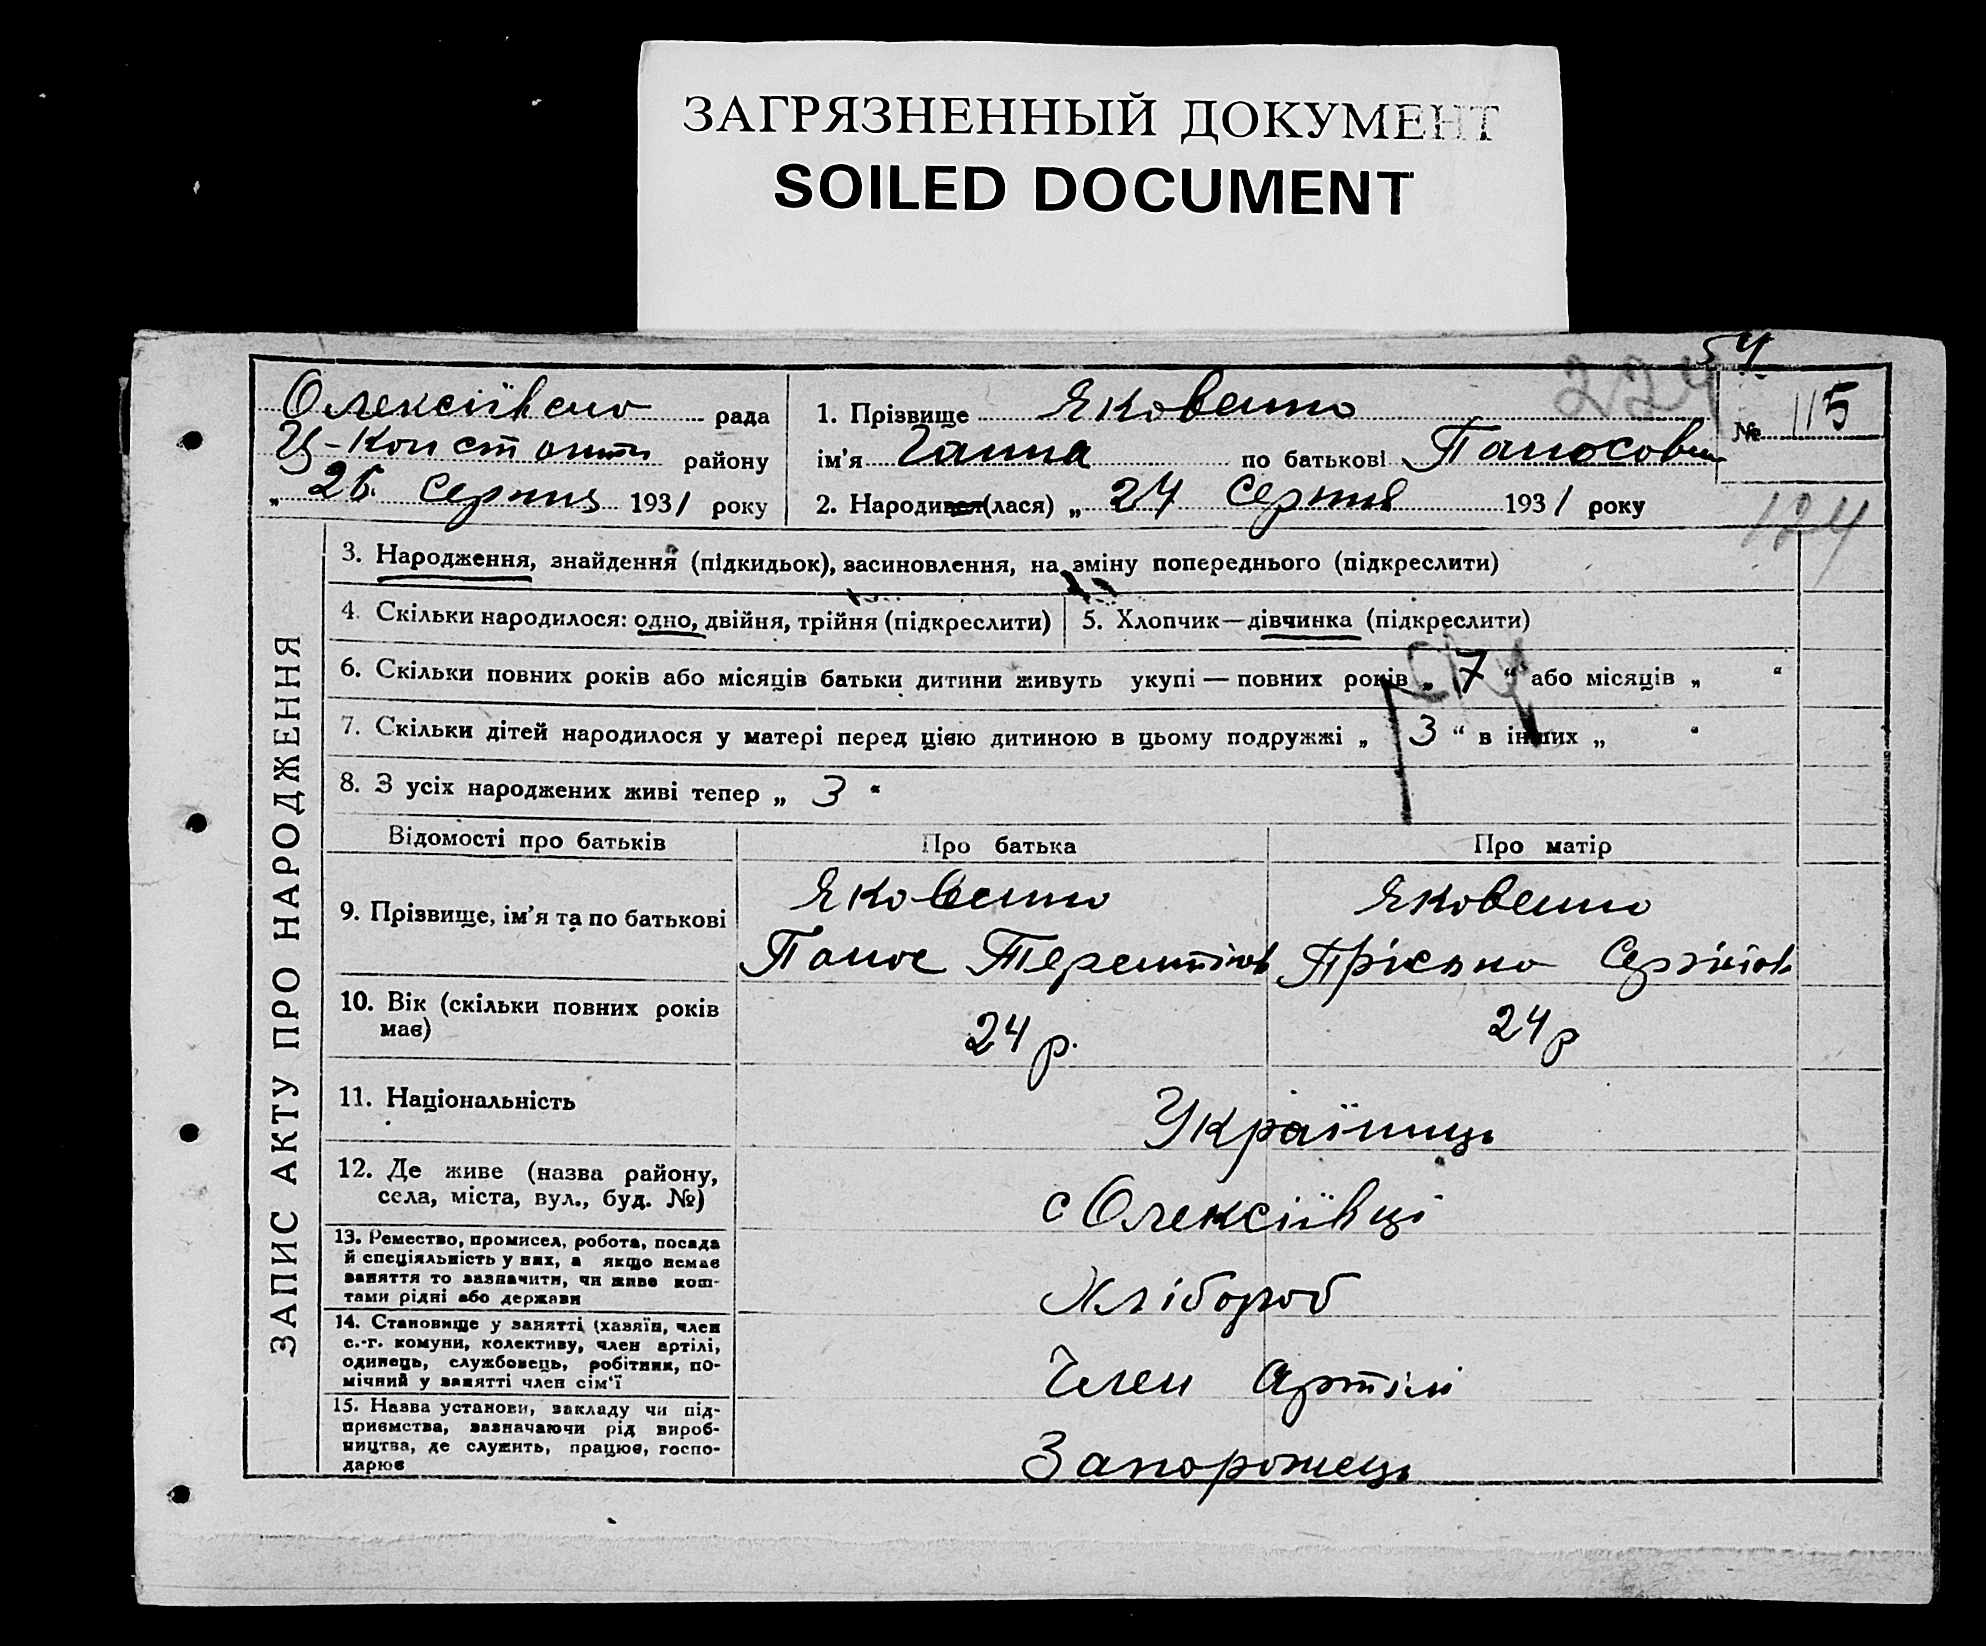 ЗАГРЯЗНЕННЫЙ ДОКУМЕНТ
SOILED DOCUMENT
54
224
Олексіївсько рада
Ц-Констант району
„ 26 Серпня 1931 року
1. Прізвище Яковенко
ім'я Ганна по батькові Панасовн
2. Народився(лася) „ 24 Серпня 1931 року
№ 115
124
ЗАПИС АКТУ ПРО НАРОДЖЕННЯ
3. Народження, знайдення (підкидьок), засиновлення, на зміну попереднього (підкреслити)
4. Скільки народилося: одно, двійня, трійня (підкреслити)
5. Хлопчик—дівчинка (підкреслити)
6. Скільки повних років або місяців батьки дитини живуть укупі — повних років „ 7 “ або місяців „ “
7. Скільки дітей народилося у матері перед цією дитиною в цьому подружжі „ 3 “ в інших „ “
8. З усіх народжених живі тепер „ 3 “
Відомості про батьків
Про батька
Про матір
9. Прізвище, ім'я та по батькові
Яковенко
Панас Терентіов
Яковенко
Сергіїов
10. Вік (скільки повних років
має)
24 р.
24 р
11. Національність
Українць
12. Де живе (назва району,
села, міста, вул., буд. №)
с Олексіївці
13. Ремество, промисел, робота, посада
й спеціяльність у них, а якщо немає
заняття то зазначити, чи живе кош-
тами рідні або держави
Хлібороб
14. Становище у занятті (хазяїн, член
с.-г. комуни, колективу, член артілі,
одинець, службовець, робітник, по-
мічний у занятті член сім'ї
Член Артілі
15. Назва установи, закладу чи під-
приємства, зазначаючи рід вироб-
ництва, де служить, працює, госпо-
дарює
Запорожець